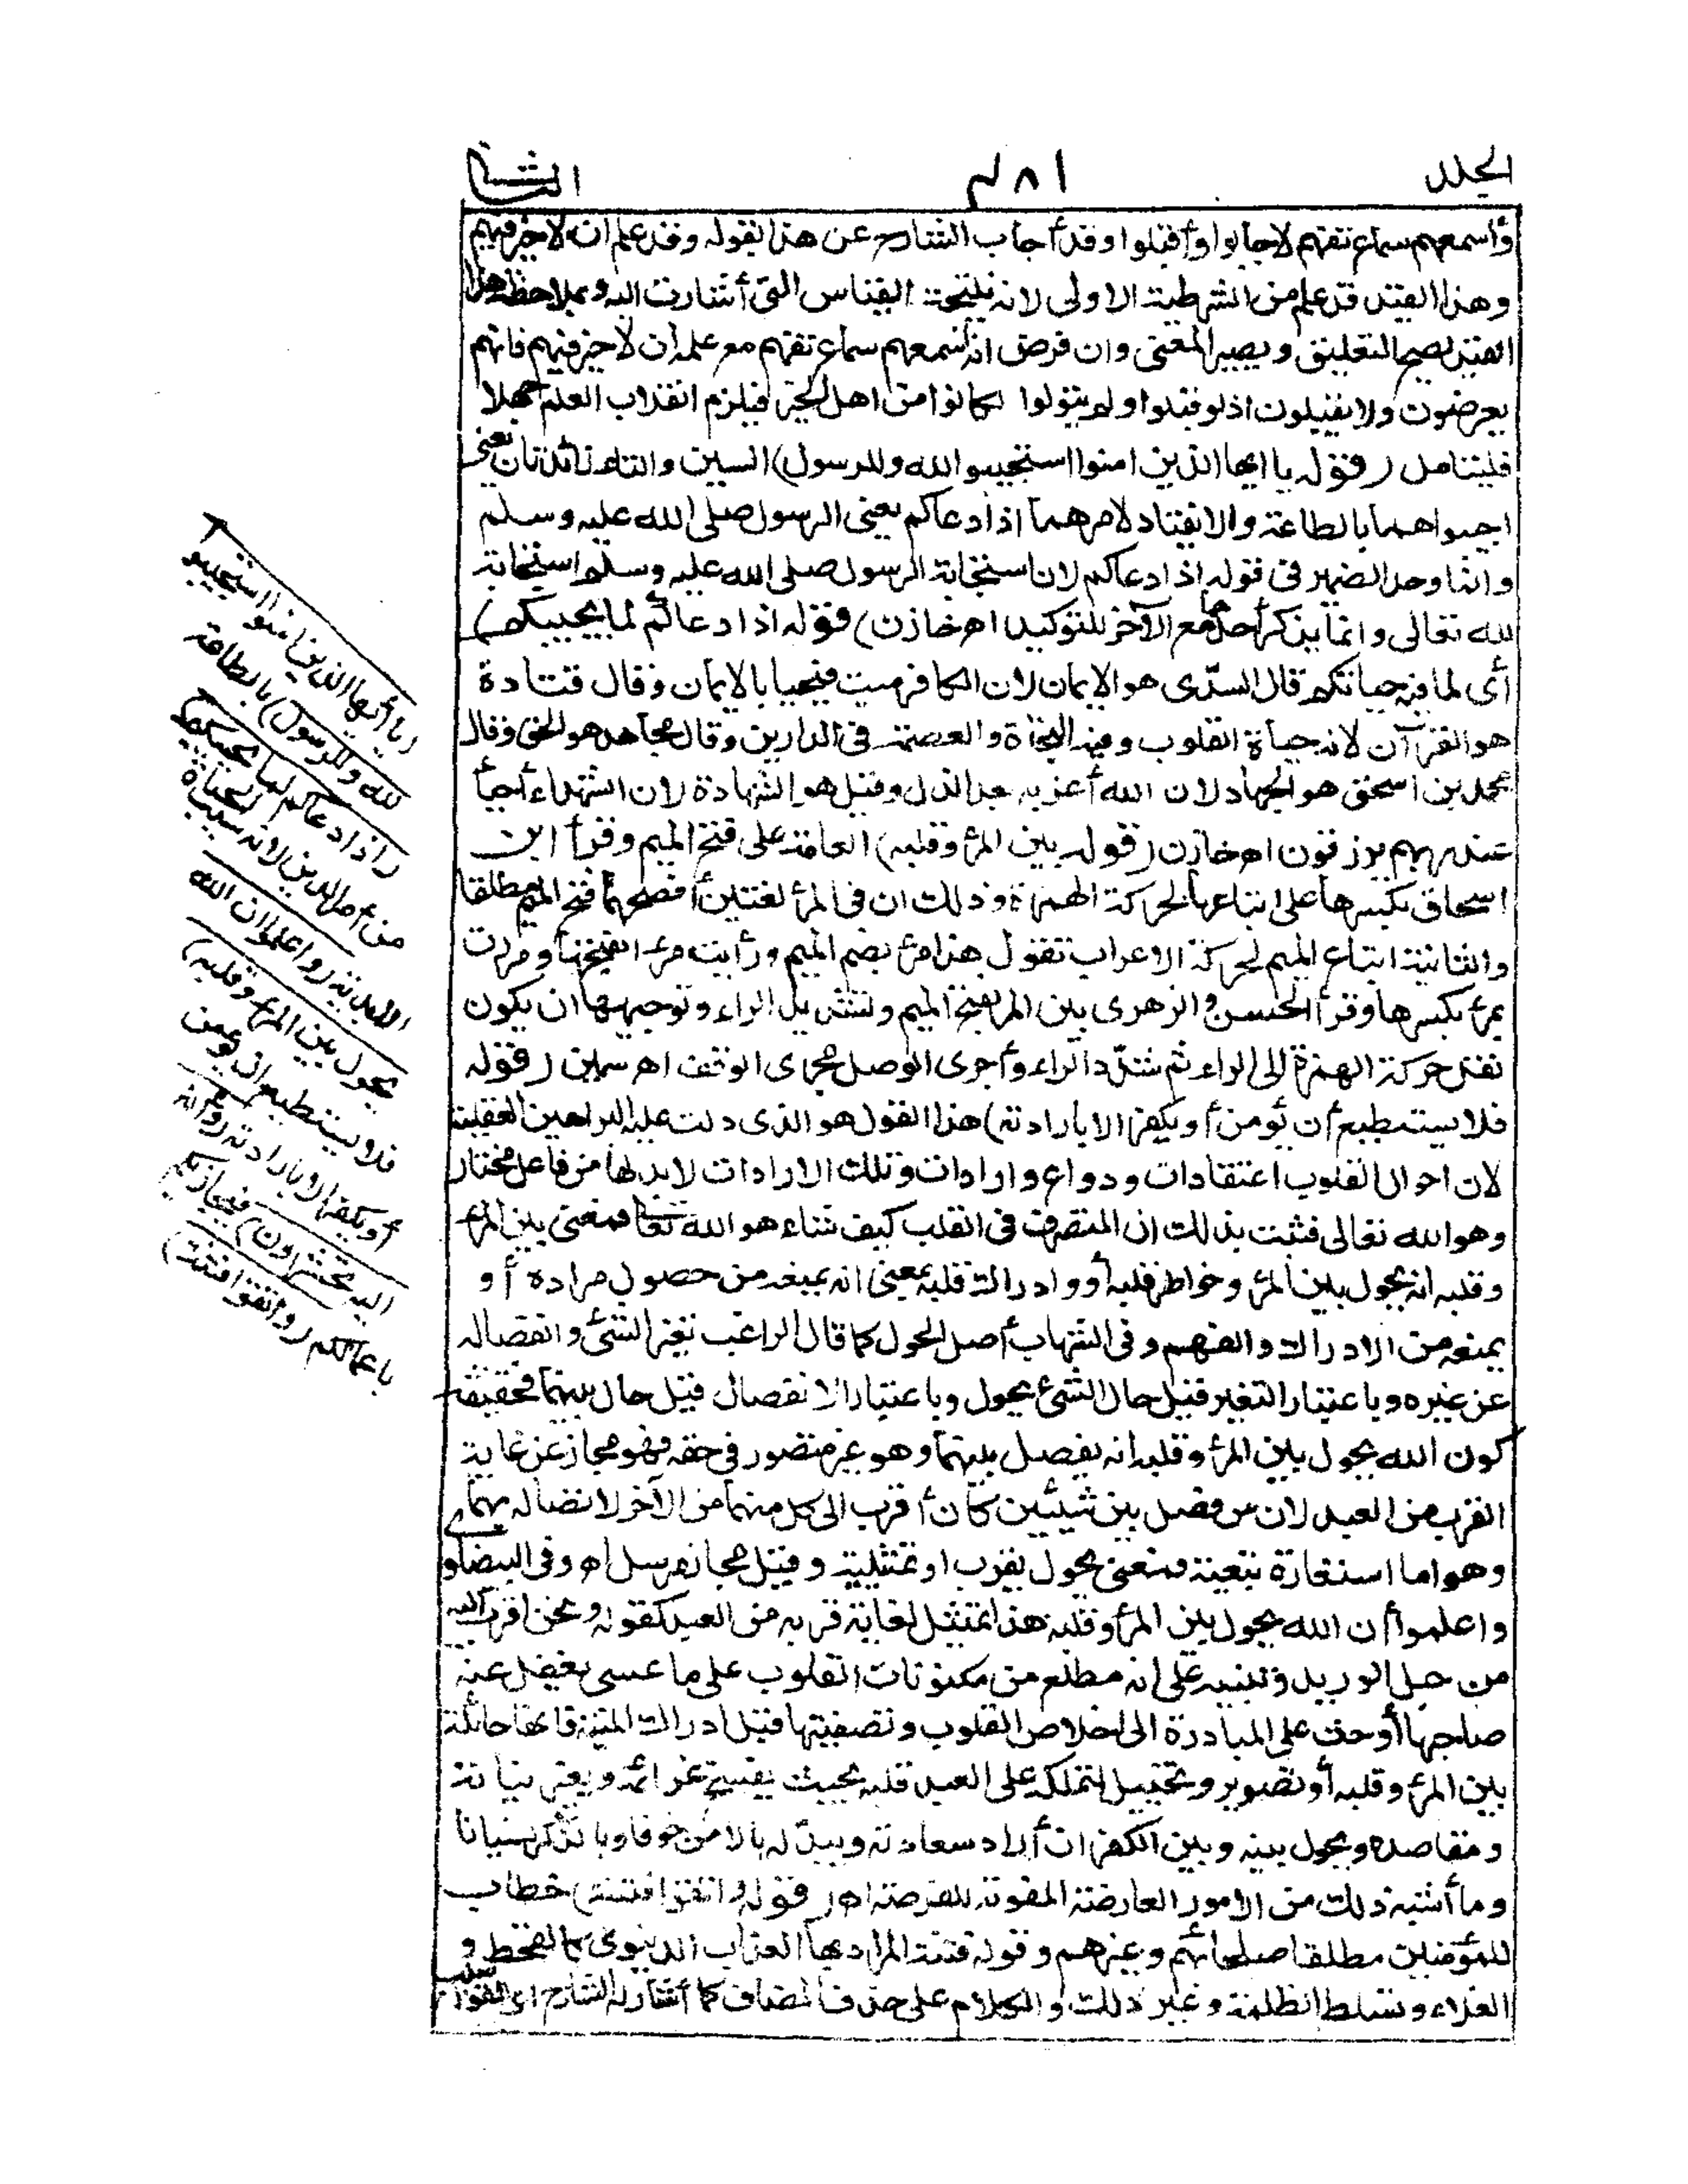 الجلد ٤٨١ الثانى
وأسمعهم سماع تفهم لاجابوا وأقبلوا وقد أجاب الشارح عن هذا بقوله وقد علم ان لاخير فيهم
وهذا القيد قد علم من الشرطية الاولى لانه نتيجة القياس التى أشارت اليه وبملاحظة هذا
القيد يصح التعليق ويصير المعنى وان فرض انه أسمعهم سماع تفهم مع علمه ان لاخير فيهم فانهم
يعرضون ولا يقبلون اذ لو قبلوا ولم يتولوا لكانوا من اهل الخير فيلزم انقلاب العلم جهلا
فليتامل (قوله يا ايها الذين امنوا استجيبوا لله وللرسول) السين والتاء زائدتان يعنى
اجيبوا هما بالطاعة والانقياد لامرهما اذا دعاكم يعنى الرسول صلى الله عليه وسلم
وانما وحد الضمير فى قوله اذا دعاكم لان استجابة الرسول صلى الله عليه وسلم استجابة
لله تعالى وانما يذكر أحدهما مع الآخر للتوكيد اهـ خازن (قوله اذا دعاكم لما يحييكم)
أى لما فيه حياتكم قال السدّى هو الايمان لان الكافر ميت فيحيا بالايمان وقال قتادة
هو القرآن لانه حياة القلوب وفيه النجاة والعصمة فى الدارين وقال مجاهد هو الحق وقال
محمد بن اسحق هو الجهاد لان الله أعز به بعد الذل وقيل هو الشهادة لان الشهداء أحيأ
عند ربهم يرزقون اهـ خازن (قوله بين المرء وقلبه) العامة على فتح الميم وقرأ ابن
اسحاق بكسرها على اتباعها لحركة الهمزة وذلك ان فى المرء لغتين أفصحهما فتح الميم مطلقا
والثانية اتباع الميم لحركة الاعراب تقول هذا مرء بضم الميم ورأيت مرءا بفتحها ومررت
بمرء بكسرها وقرأ الحسن والزهرى بين المر بفتح الميم وتشديد الراء وتوجيهها ان يكون
نقل حركة الهمزة الى الراء ثم شدّد الراء وأجرى الوصل مجرى الوقف اهـ سمين (قوله
فلا يستطيع أن يؤمن أو يكفر الا بارادته) هذا القول هو الذى دلت عليه البراهين العقلية
لان احوال القلوب اعتقادات ودواع وارادات وتلك الارادات لابد لها من فاعل مختار
وهو الله تعالى فثبت بذلك ان المتصرف فى القلب كيف شاء هو الله تعا فمعنى بين المرء
وقلبه انه يحول بين المرء وخواطر قلبه أو وادراك قلبه بمعنى انه يمنعه من حصول مراده أو
يمنعه من الادراك والفهم وفى الشهاب أصل الحول كما قال الراغب تغير الشئ وانفصاله
عن غيره وباعتبار التغير قيل حال الشئ يحول وباعتبار الانفصال قيل حال بينهما فحقيقة
كون الله يحول بين المرء وقلبه انه يفصل بينهما وهو غير متصور فى حقه فهو مجاز عن غاية
القرب من العبد لان من فصل بين شيئين كان أقرب الى كل منهما من الآخر لاتصاله بهما
وهو اما استعارة تبعية فمعنى يحول يقرب او تمثيلية وقيل مجاز مرسل اهـ وفى البيضاوى
واعلموا أن الله يحول بين المرء وقلبه هذا تمثيل لغاية قربه من العبد كقوله ونحن اقرب اليه
من حبل الوريد وتنبيه على انه مطلع من مكنونات القلوب على ما عسى يغفل عنه
صاحبها أو حث على المبادرة الى اخلاص القلوب وتصفيتها قبل ادراك المنية فانها حائلة
بين المرء وقلبه أو تصوير وتخييل لتملكه على العبد قلبه بحيث يفسخ عزائمه ويغير نياته
ومقاصده ويحول بينه وبين الكفر ان أراد سعادته ويبدّله بالامن خوفا وبالذكر نسيانا
وما أشبه ذلك من الامور العارضة المفوتة للفرصة اهـ (قوله واتقوا فتنة) خطاب
للمؤمنين مطلقا صلحائهم وغيرهم وقوله فتنة المراد بها العذاب الدنيوى كالقحط و
الغلاء وتسلط الظلمة وغير ذلك والكلام على حذف المضاف كما أشار له الشارح اى اتقوا سبب
(يا أيها الذين امنوا استجيبو
لله وللرسول) بالطاعة
(اذا دعاكم لما يحييكم)
من أمر الدين لانه سبب الحياة
الابدية (واعلموا ان الله
يحول بين المرء وقلبه)
فلا يستطيع ان يؤمن
أو يكفر الا بارادته (وأنه
اليه تحشرون) فيجازيكم
باعمالكم (واتقوا فتنة)